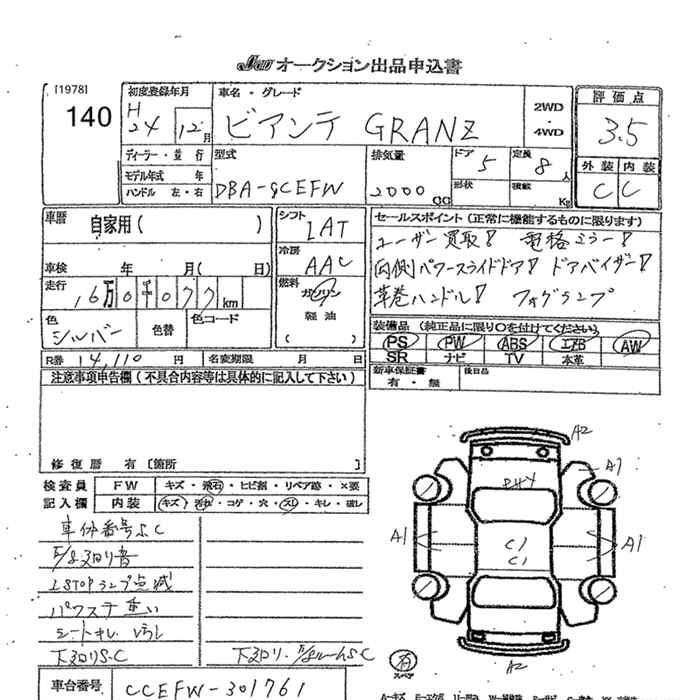 Jauオークション出品申込書
[1978]
140
初度登録年月
H
24 12月
車名・グレード
ビアンテ GRANZ
2WD
・
4WD
評価点
3.5
外装 内装
C C
ディーラー・並行
モデル年式 年
ハンドル 左・右
型式
DBA-
排気量
2000 cc
ドア 5
形状
定員 8 人
積載 Kg
車歴
自家用( )
車検 年 月( 日)
シフト
冷房
AAC
燃料
ガソリン
軽油
( )
走行
16万0千077km
色
シルバー
色替
色コード
R券 14,110 円
名変期限 月 日
セールスポイント(正常に機能するものに限ります)
ユーザー買取! 電格ミラー!
両側パワースライドドア! ドアバイザー!
革巻ハンドル! フォグランプ
装備品 (純正品に限り○を付けてください)
PS PW ABS エアB AW
SR ナビ TV 本革
新車保証書
有・無
後日品
注意事項申告欄(不具合内容等は具体的に記入して下さい)
修復歴 有 〔箇所 〕
検査員
記入欄
FW キズ・飛石・ヒビ割・リペア跡・×要
内装 キズ・汚れ・コゲ・穴・スレ・キレ・破し
車体番号S.C
STOPランプ点滅
パワステ重い
シートキレ
下廻りS.C
下廻り
車台番号 CCEFW-301761
A2
A1
A1
C1
C1
A1
A2
有
スペア